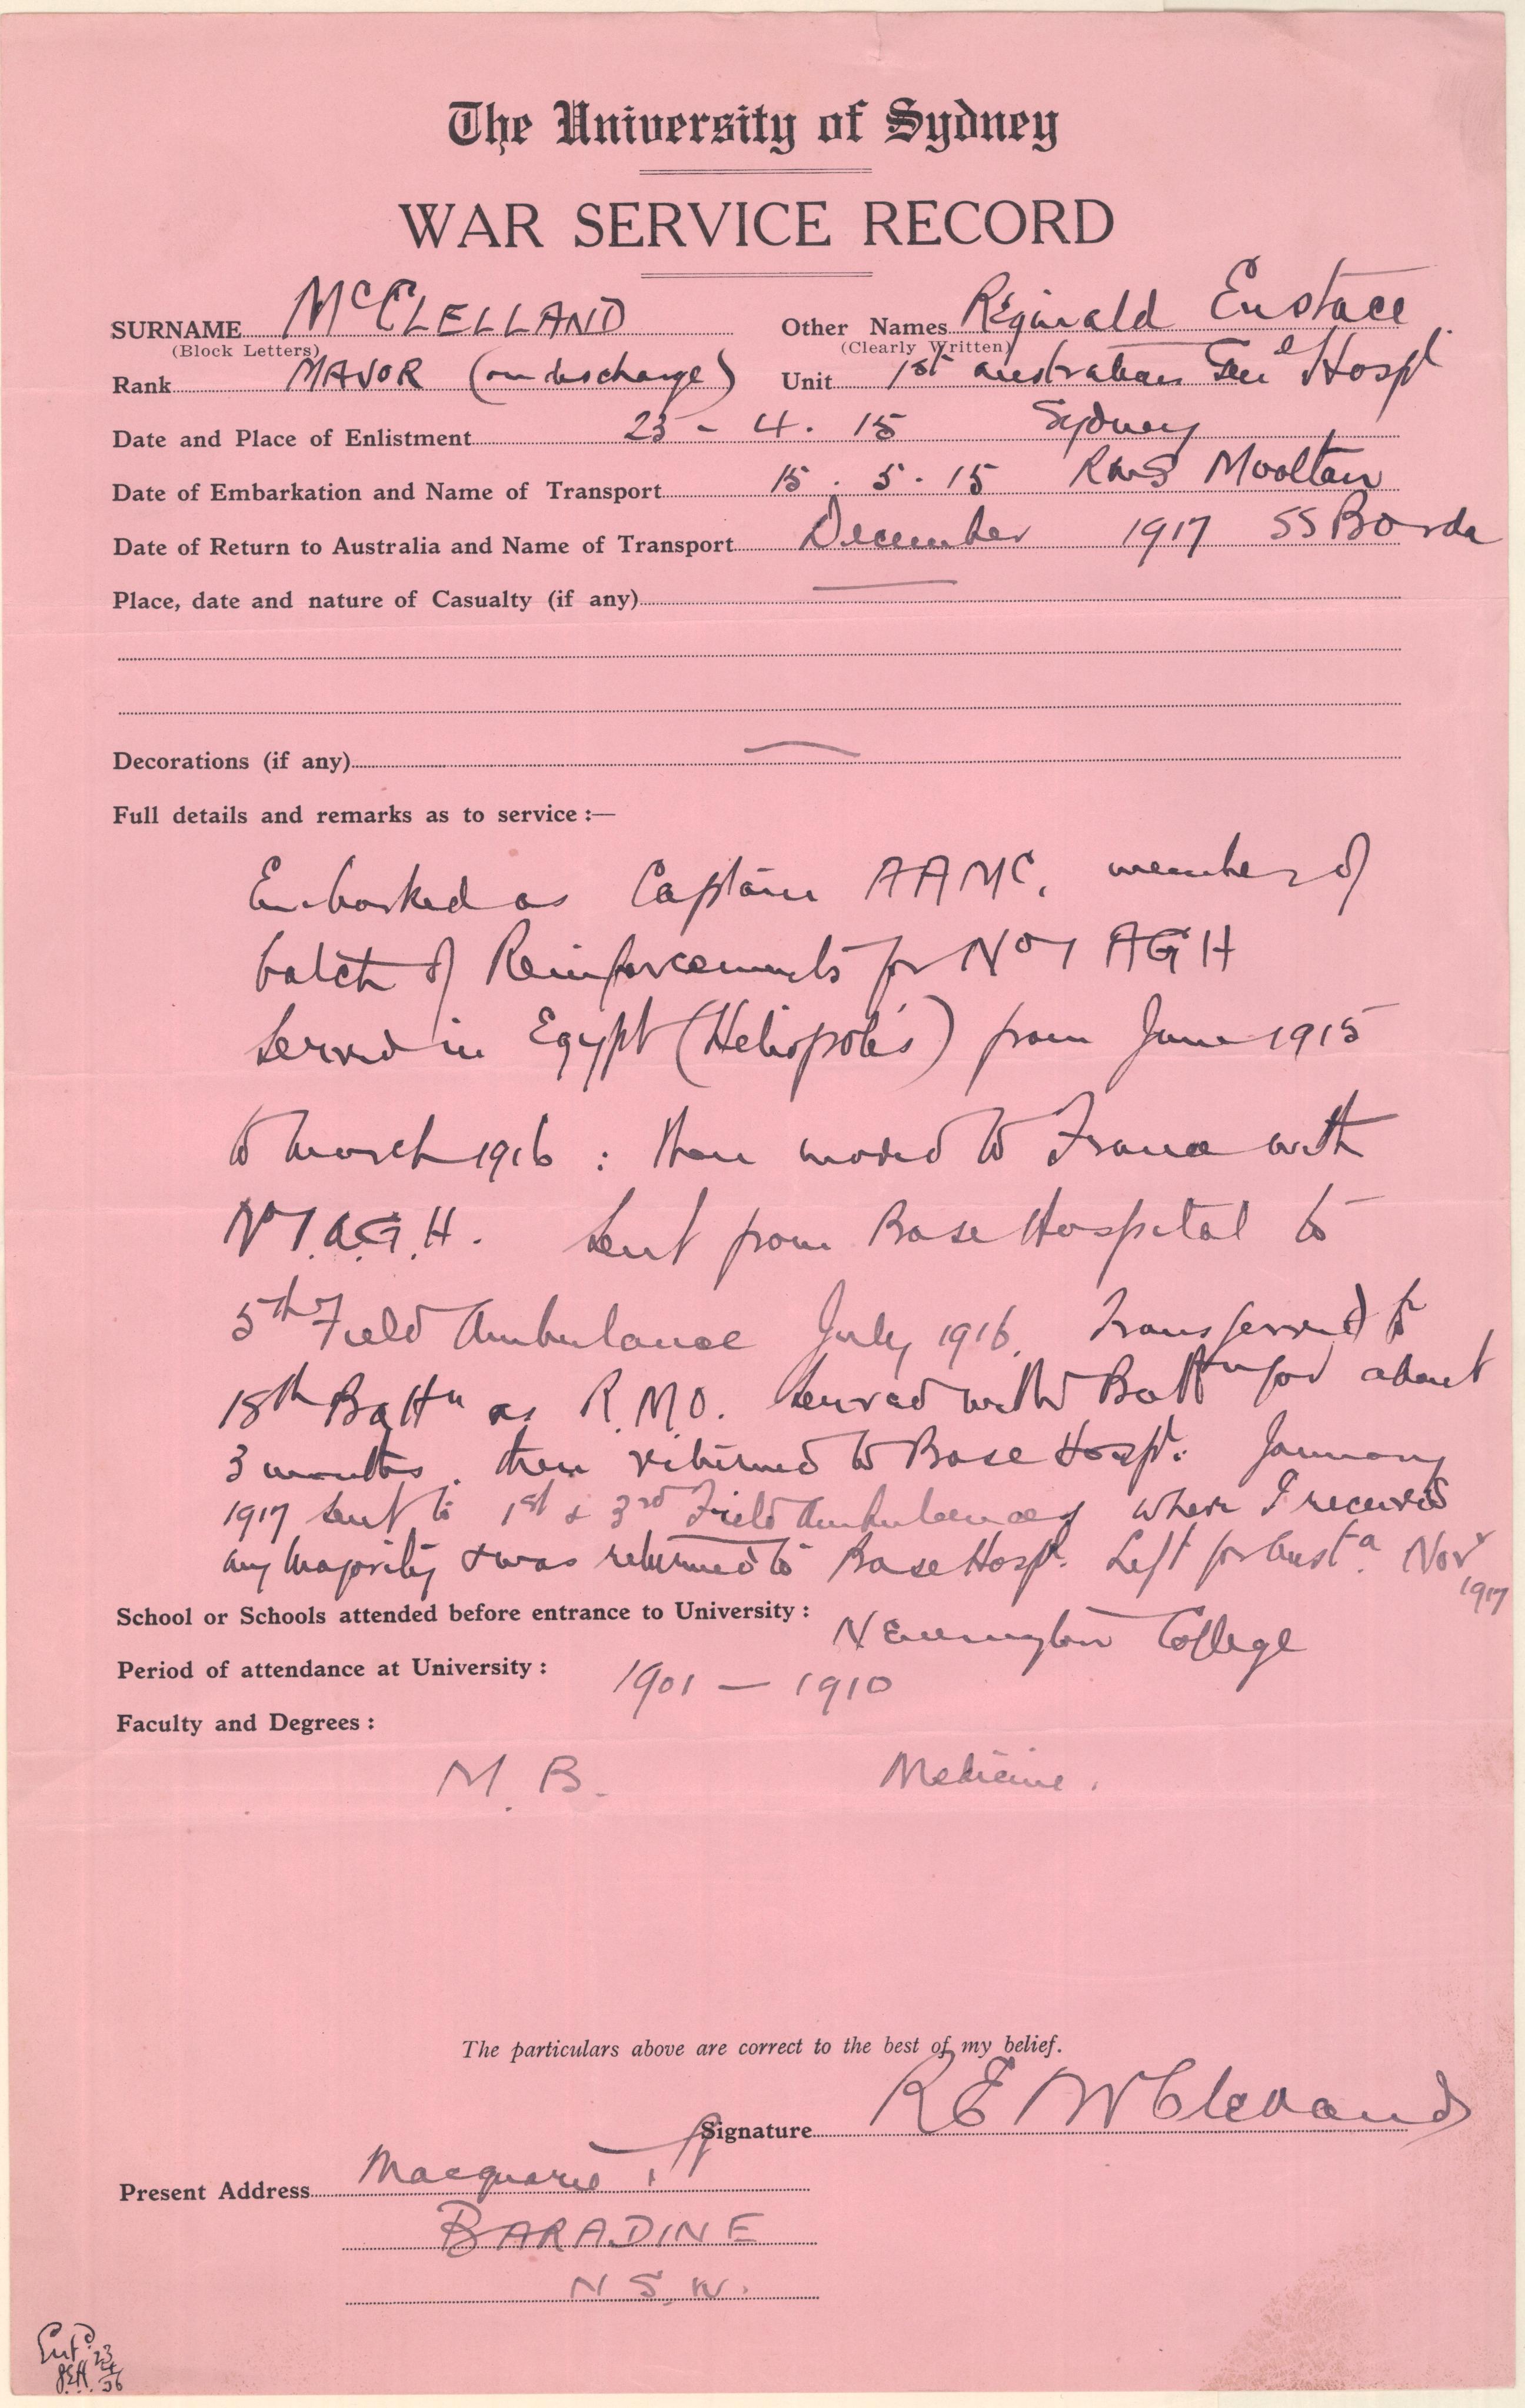 The University of Sydney
WAR SERVICE RECORD
SURNAME McCLELLAND Other Names Reginald Eustace
(Block Letters) (Clearly Written)
Rank MAJOR (on discharge) Unit 1st Australian Genl Hospl
Date and Place of Enlistment 23 - 4 . 15 Sydney
Date of Embarkation and Name of Transport 15 . 5 . 15 RMS Mooltan
Date of Return to Australia and Name of Transport December 1917 SS Borda
Place, date and nature of Casualty (if any) —
Decorations (if any) —
Full details and remarks as to service :—
Embarked as Captain AAMC. member of
batch of Reinforcements for No 1 AGH
Served in Egypt (Heliopolis) from June 1915
to March 1916 : then moved to France with
No 1. A.G.H. Sent from Base Hospital to
5th Field Ambulance July 1916. Transferred to
18th Battn as R.M.O. Served with Battn for about
3 months. then returned to Base Hospt. January
1917 sent to 1st & 3rd Field Ambulances where I received
my Majority & was returned to Base Hospt. Left for Austa. Novr
1917
School or Schools attended before entrance to University : Newington College
Period of attendance at University : 1901 — 1910
Faculty and Degrees :
M. B. Medicine.
The particulars above are correct to the best of my belief.
Signature R E McClelland
Present Address Macquarie St
BARADINE
N S. W.
Entd
J.E.H. 23/4/36